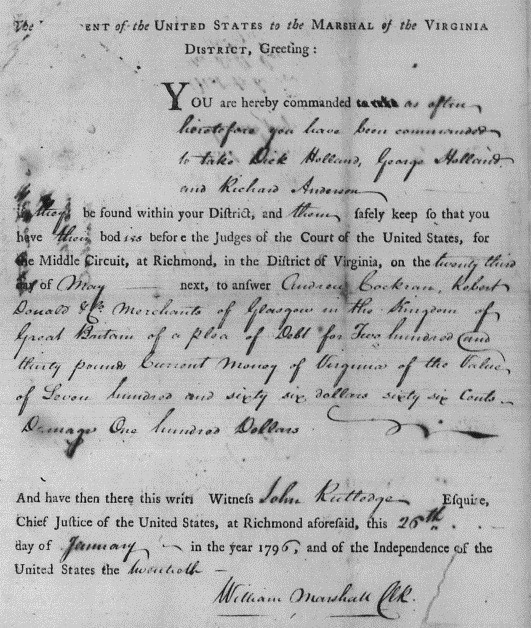 The ENT of the UNITED STATES to the MARSHAL of the VIRGINIA
DISTRICT, Greeting:
YOU are hereby commanded to take as often
heretofore you have been commanded
to take Dick Holland, George Holland
and Richard Anderson
if they be found within your District, and them safely keep so that you
have their bodies before the Judges of the Court of the United States, for
the Middle Circuit, at Richmond, in the District of Virginia, on the twenty third
day of May next, to answer Andrew Cockran, Robert
Donald & Co. Merchants of Glasgow in the Kingdom of
Great Britain of a plea of Debt for Two hundred and
thirty pounds Current Money of Virginia of the Value
of Seven hundred and sixty six dollars sixty six Cents
Damage One hundred Dollars
And have then there this writ: Witness John Rutledge Esquire,
Chief Justice of the United States, at Richmond aforesaid, this 26th
day of January in the year 1796, and of the Independence of the
United States the twentieth
William Marshall Clk.